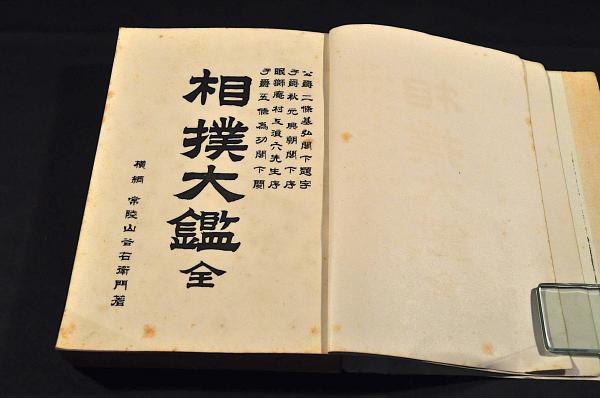 公爵二條基弘閣下題字
子爵秋元興朝閣下序
眼獅庵村瓦浪六先生序
子爵五條為功閣下閲
相撲大鑑 全
横綱 常陸山谷右衛門著